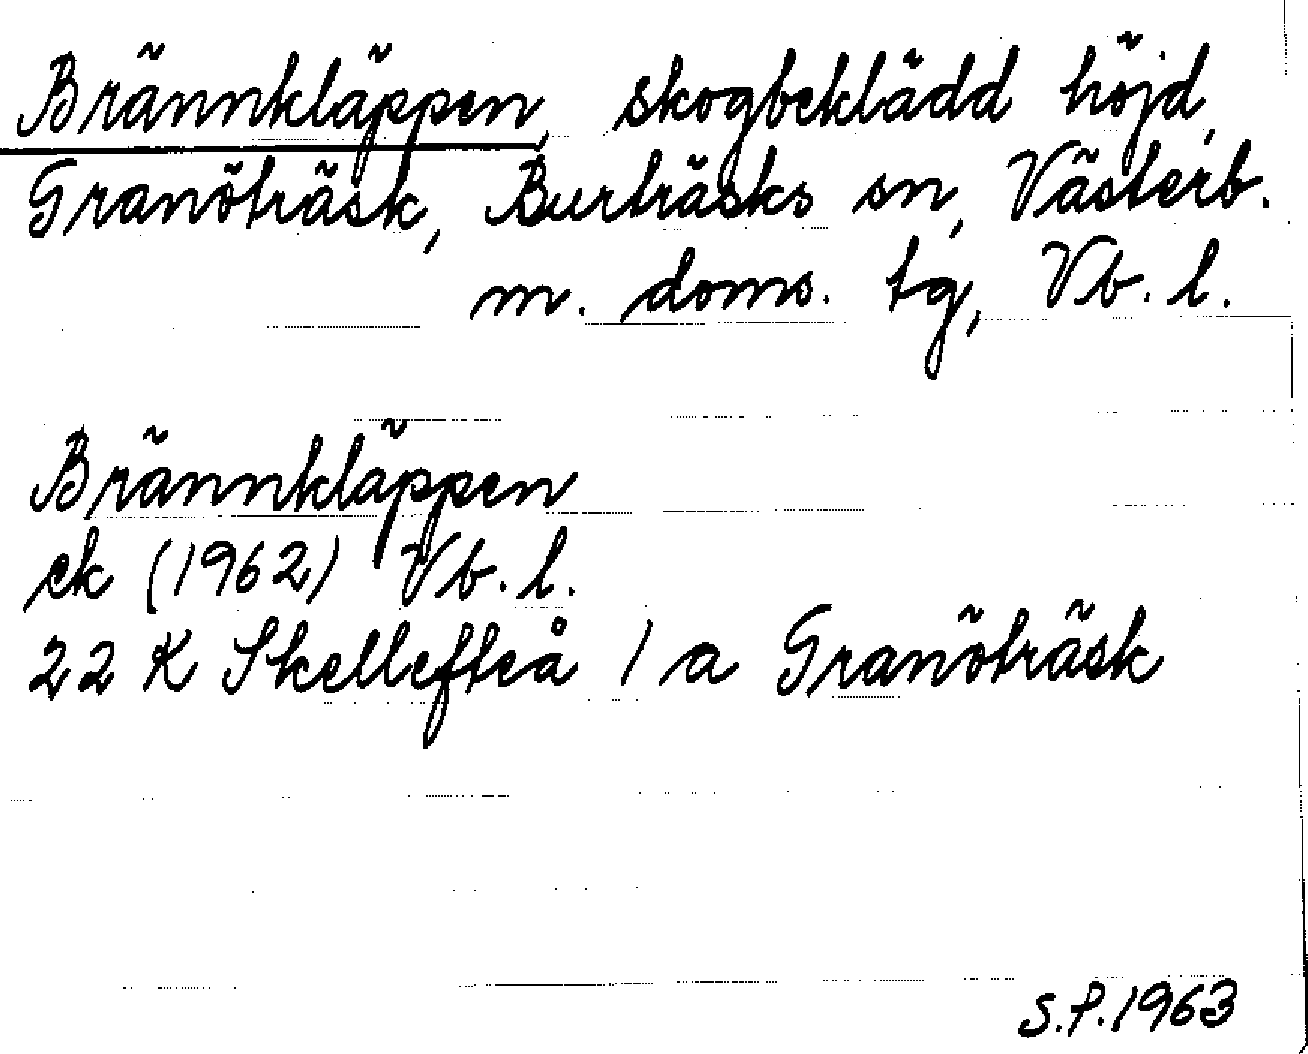 Brännkläppen, skogbeklädd höjd,
Granöträsk, Burträsks sn, Västerb.
m. doms. tg, Vb. l.
Brännkläppen
ek (1962) Vb. l.
22 K Skellefteå 1 a Granöträsk
S.P. 1963